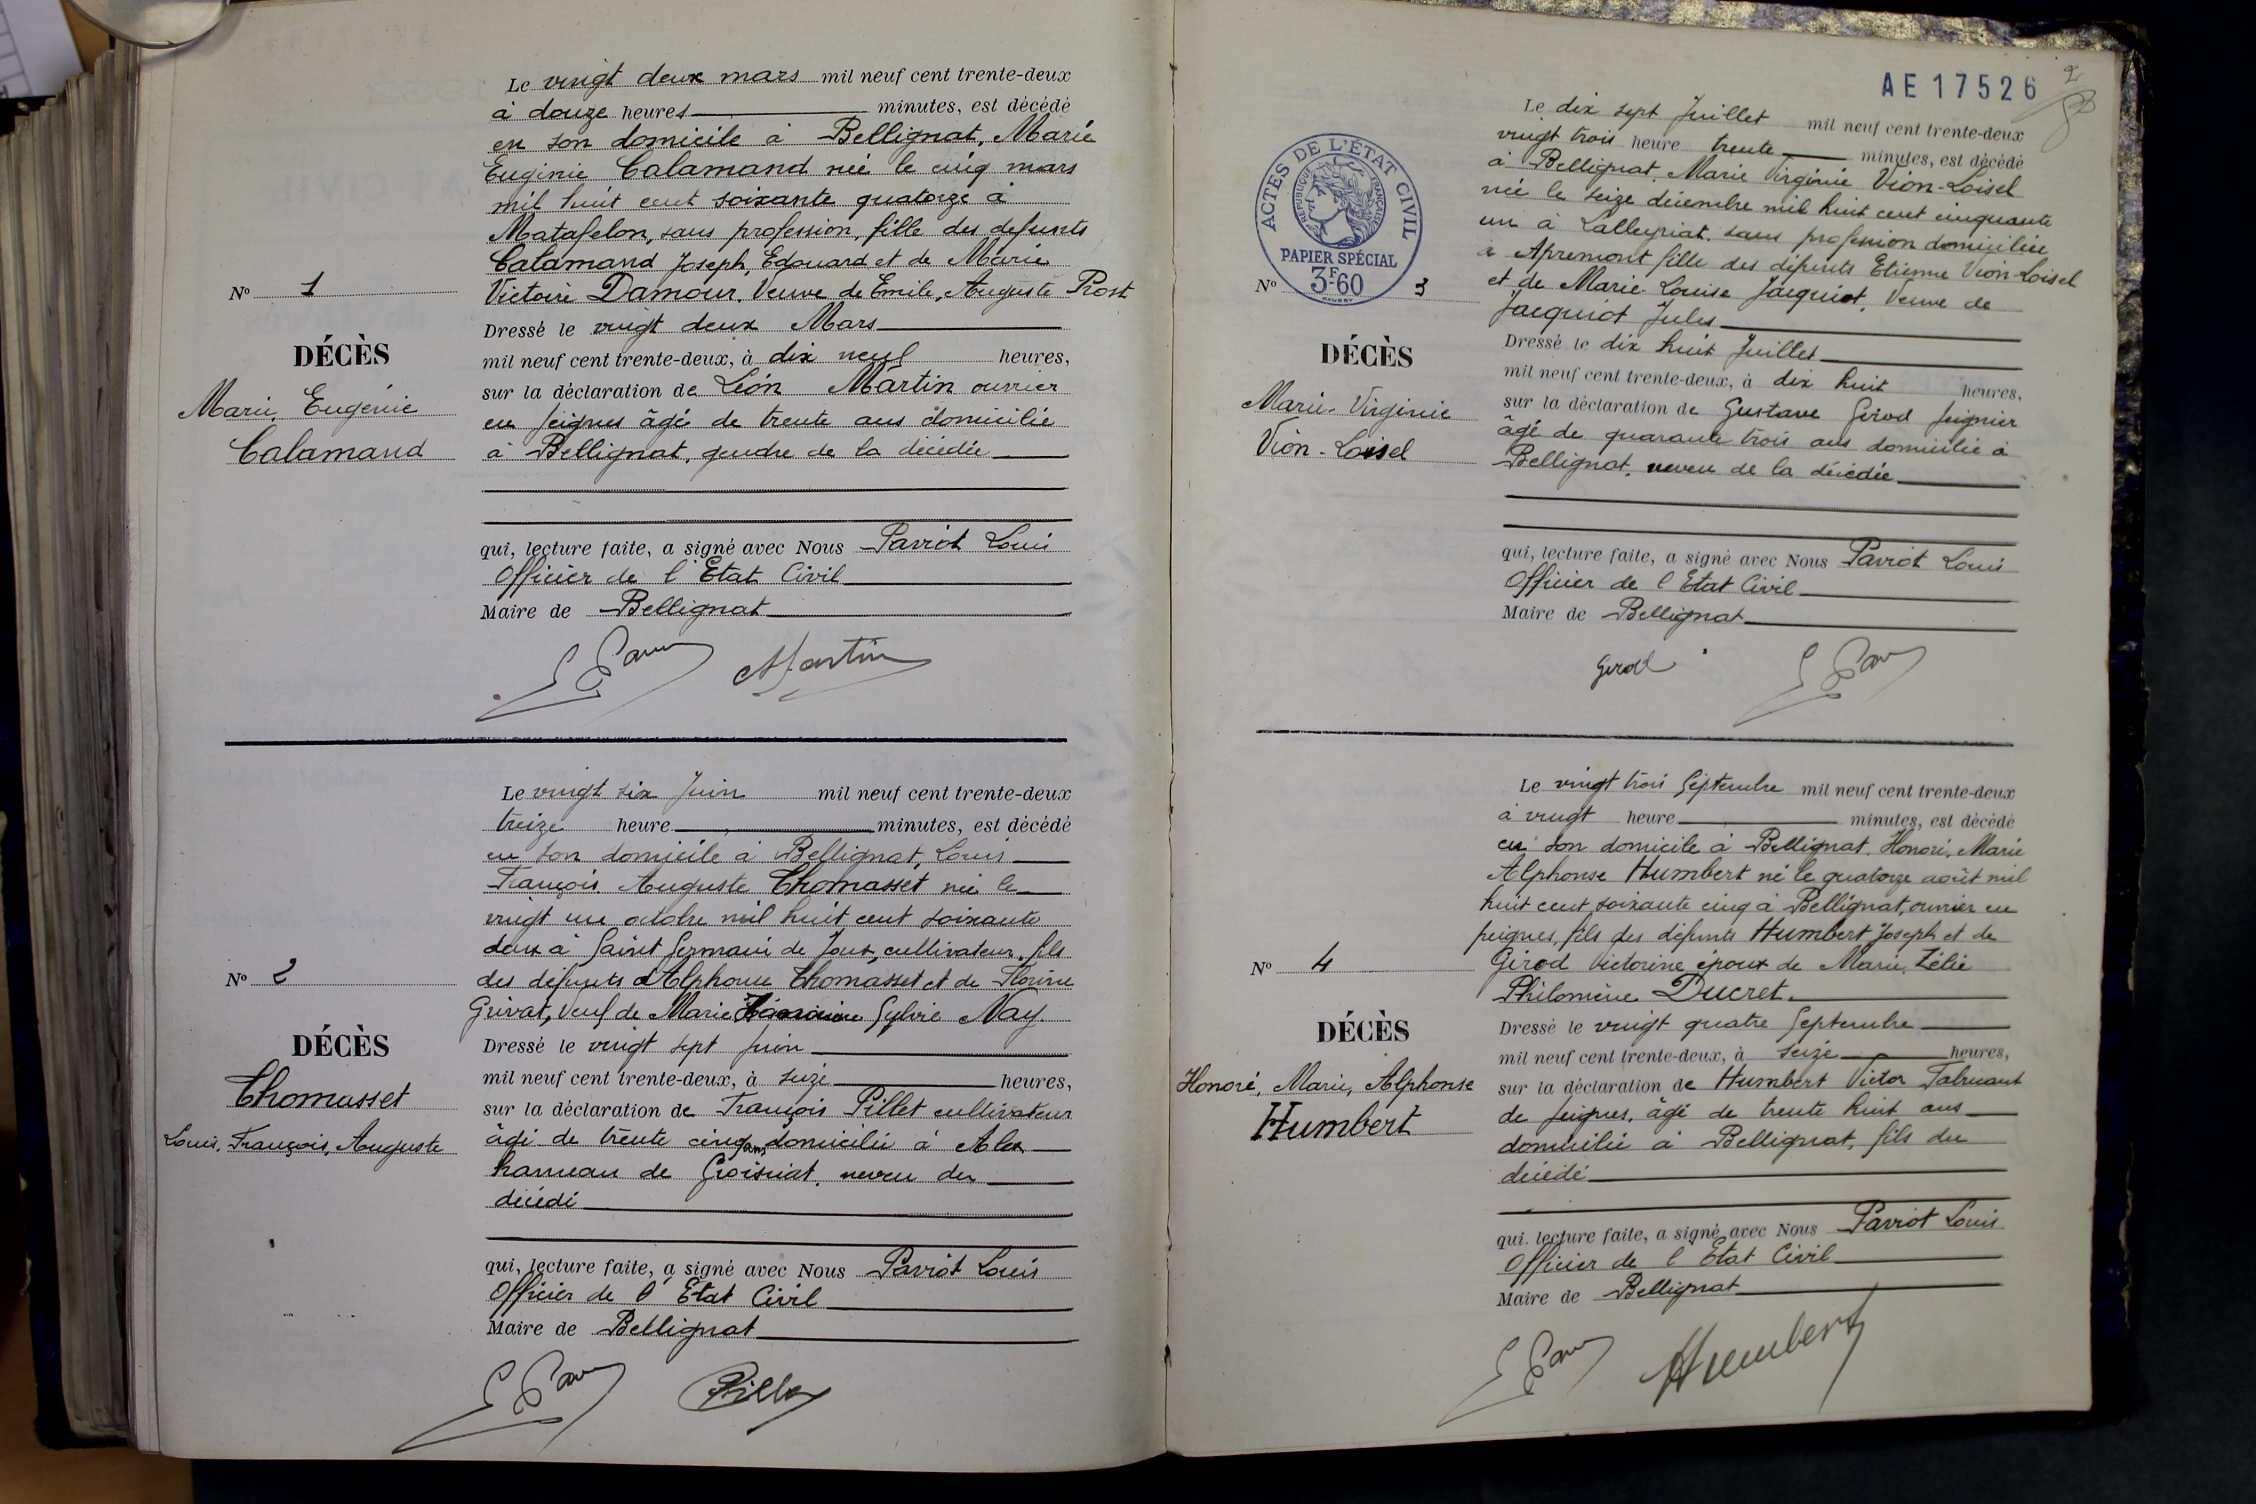 Le vingt deux mars mil neuf cent trente-deux
à douze heures minutes, est décédé
en son domicile à Bellignat, Marie
Eugénie Calamand née le cinq mars
mil huit cent soixante quatorze à
Matafelon, sans profession, fille des defunts
Calamand Joseph, Edouard et de Marie
Victoire Damour, Veuve de Emile, Auguste Prost
Nº 1
DÉCÈS
Marie Eugénie
Calamand
Dressé le vingt deux Mars
mil neuf cent trente-deux, à dix neuf heures,
sur la déclaration de Léon Martin ouvrier
en peignes âgé de trente ans domicilié
à Bellignat, gendre de la décédée
qui, lecture faite, a signé avec Nous Paviot Louis
Officier de l'Etat Civil
Maire de Bellignat
Martin
Le vingt six Juin mil neuf cent trente-deux
treize heure minutes, est décédé
en son domicile à Bellignat, Louis
François Auguste Thomasset né le
vingt un octobre mil huit cent soixante
deux à Saint Germain de Joux, cultivateur, fils
des défunts Alphonse Thomasset et de Florine
Grivat, Veuf de Marie Sylvie Nay.
Nº 2
DÉCÈS
Thomasset
Louis, François, Auguste
Dressé le vingt sept Juin
mil neuf cent trente-deux, à seize heures,
sur la déclaration de François Pillet cultivateur
âgé de trente cinq ans domicilié à Alex
hameau de Groissiat, neveu du
décédé
qui, lecture faite, a signé avec Nous Paviot Louis
Officier de l'Etat Civil
Maire de Bellignat
Pillet
AE 17526
2
Le dix sept Juillet mil neuf cent trente-deux
vingt trois heure trente minutes, est décédé
à Bellignat, Marie Virginie Vion-Loisel
née le seize décembre mil huit cent cinquante
un à Lalleyriat, sans profession domiciliée
à Apremont fille des défunts Etienne Vion-Loisel
et de Marie-Louise Jacquiot, Veuve de
Jacquiot Jules
ACTES DE L'ÉTAT CIVIL
RÉPUBLIQUE FRANÇAISE
PAPIER SPÉCIAL
3F60
Nº 3
DÉCÈS
Marie-Virginie
Vion-Loisel
Dressé le dix huit Juillet
mil neuf cent trente-deux, à dix huit heures,
sur la déclaration de Gustave Girod peignier
âgé de quarante trois ans domicilié à
Bellignat, neveu de la décédée
qui, lecture faite, a signé avec Nous Paviot Louis
Officier de l'Etat Civil
Maire de Bellignat
Girod
Le vingt trois Septembre mil neuf cent trente-deux
à vingt heure minutes, est décédé
en son domicile à Bellignat, Honoré, Marie
Alphonse Humbert né le quatorze août mil
huit cent soixante cinq à Bellignat, ouvrier en
peignes, fils des défunts Humbert Joseph et de
Girod Victorine époux de Marie, Zélie
Philomène Ducret.
Nº 4
DÉCÈS
Honoré, Marie, Alphonse
Humbert
Dressé le vingt quatre Septembre
mil neuf cent trente-deux, à seize heures,
sur la déclaration de Humbert Victor Fabricant
de peignes, âgé de trente huit ans
domicilié à Bellignat, fils du
décédé
qui, lecture faite, a signé avec Nous Paviot Louis
Officier de l'Etat Civil
Maire de Bellignat
Humbert